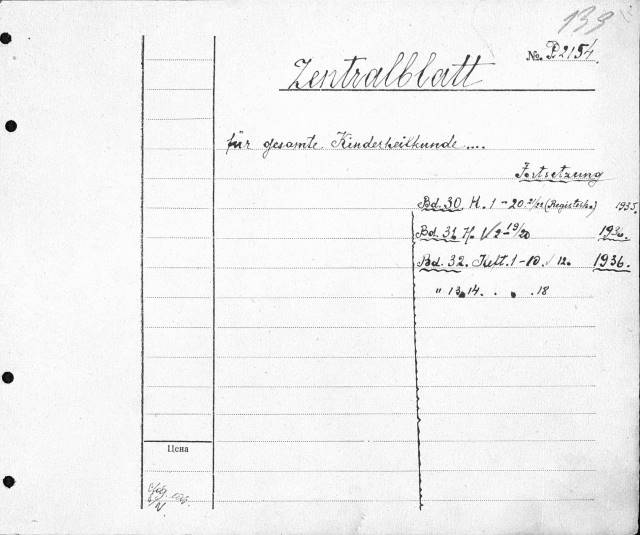 139
№ P2154
Zentralblatt
für gesamte Kinderheilkunde....
Fortsetzung
Bd. 30. H. 1-20. 21/22 (Registerh.) 1935.
Bd. 31. H. 1/2-19/20 1936.
Bd. 32. Heft. 1-10. 12. 1936.
" 13. 14. . . . 18
Цена